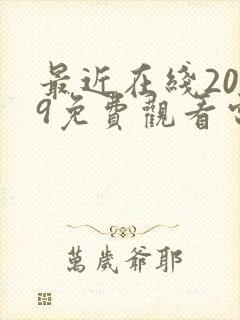 最近在綫20
9免費觀看
萬歲爺耶